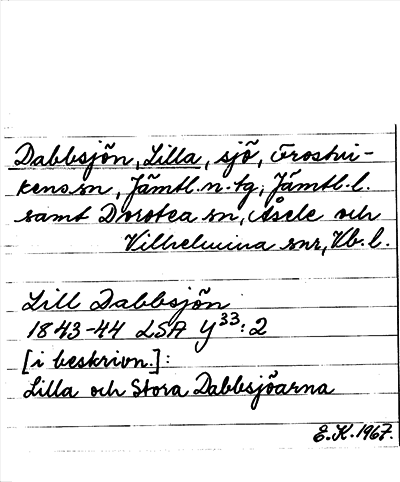 Dabbsjön, Lilla, sjö, Frostvi-
kens sn, Jämtl. n. tg, Jämtl. l.
samt Dorotea sn, Åsele och
Vilhelmina snr, Vb. l.
Lill Dabbsjön
1843-44 LSA Y33:2
[i beskrivn.]:
Lilla och Stora Dabbsjöarna
E.K. 1967.